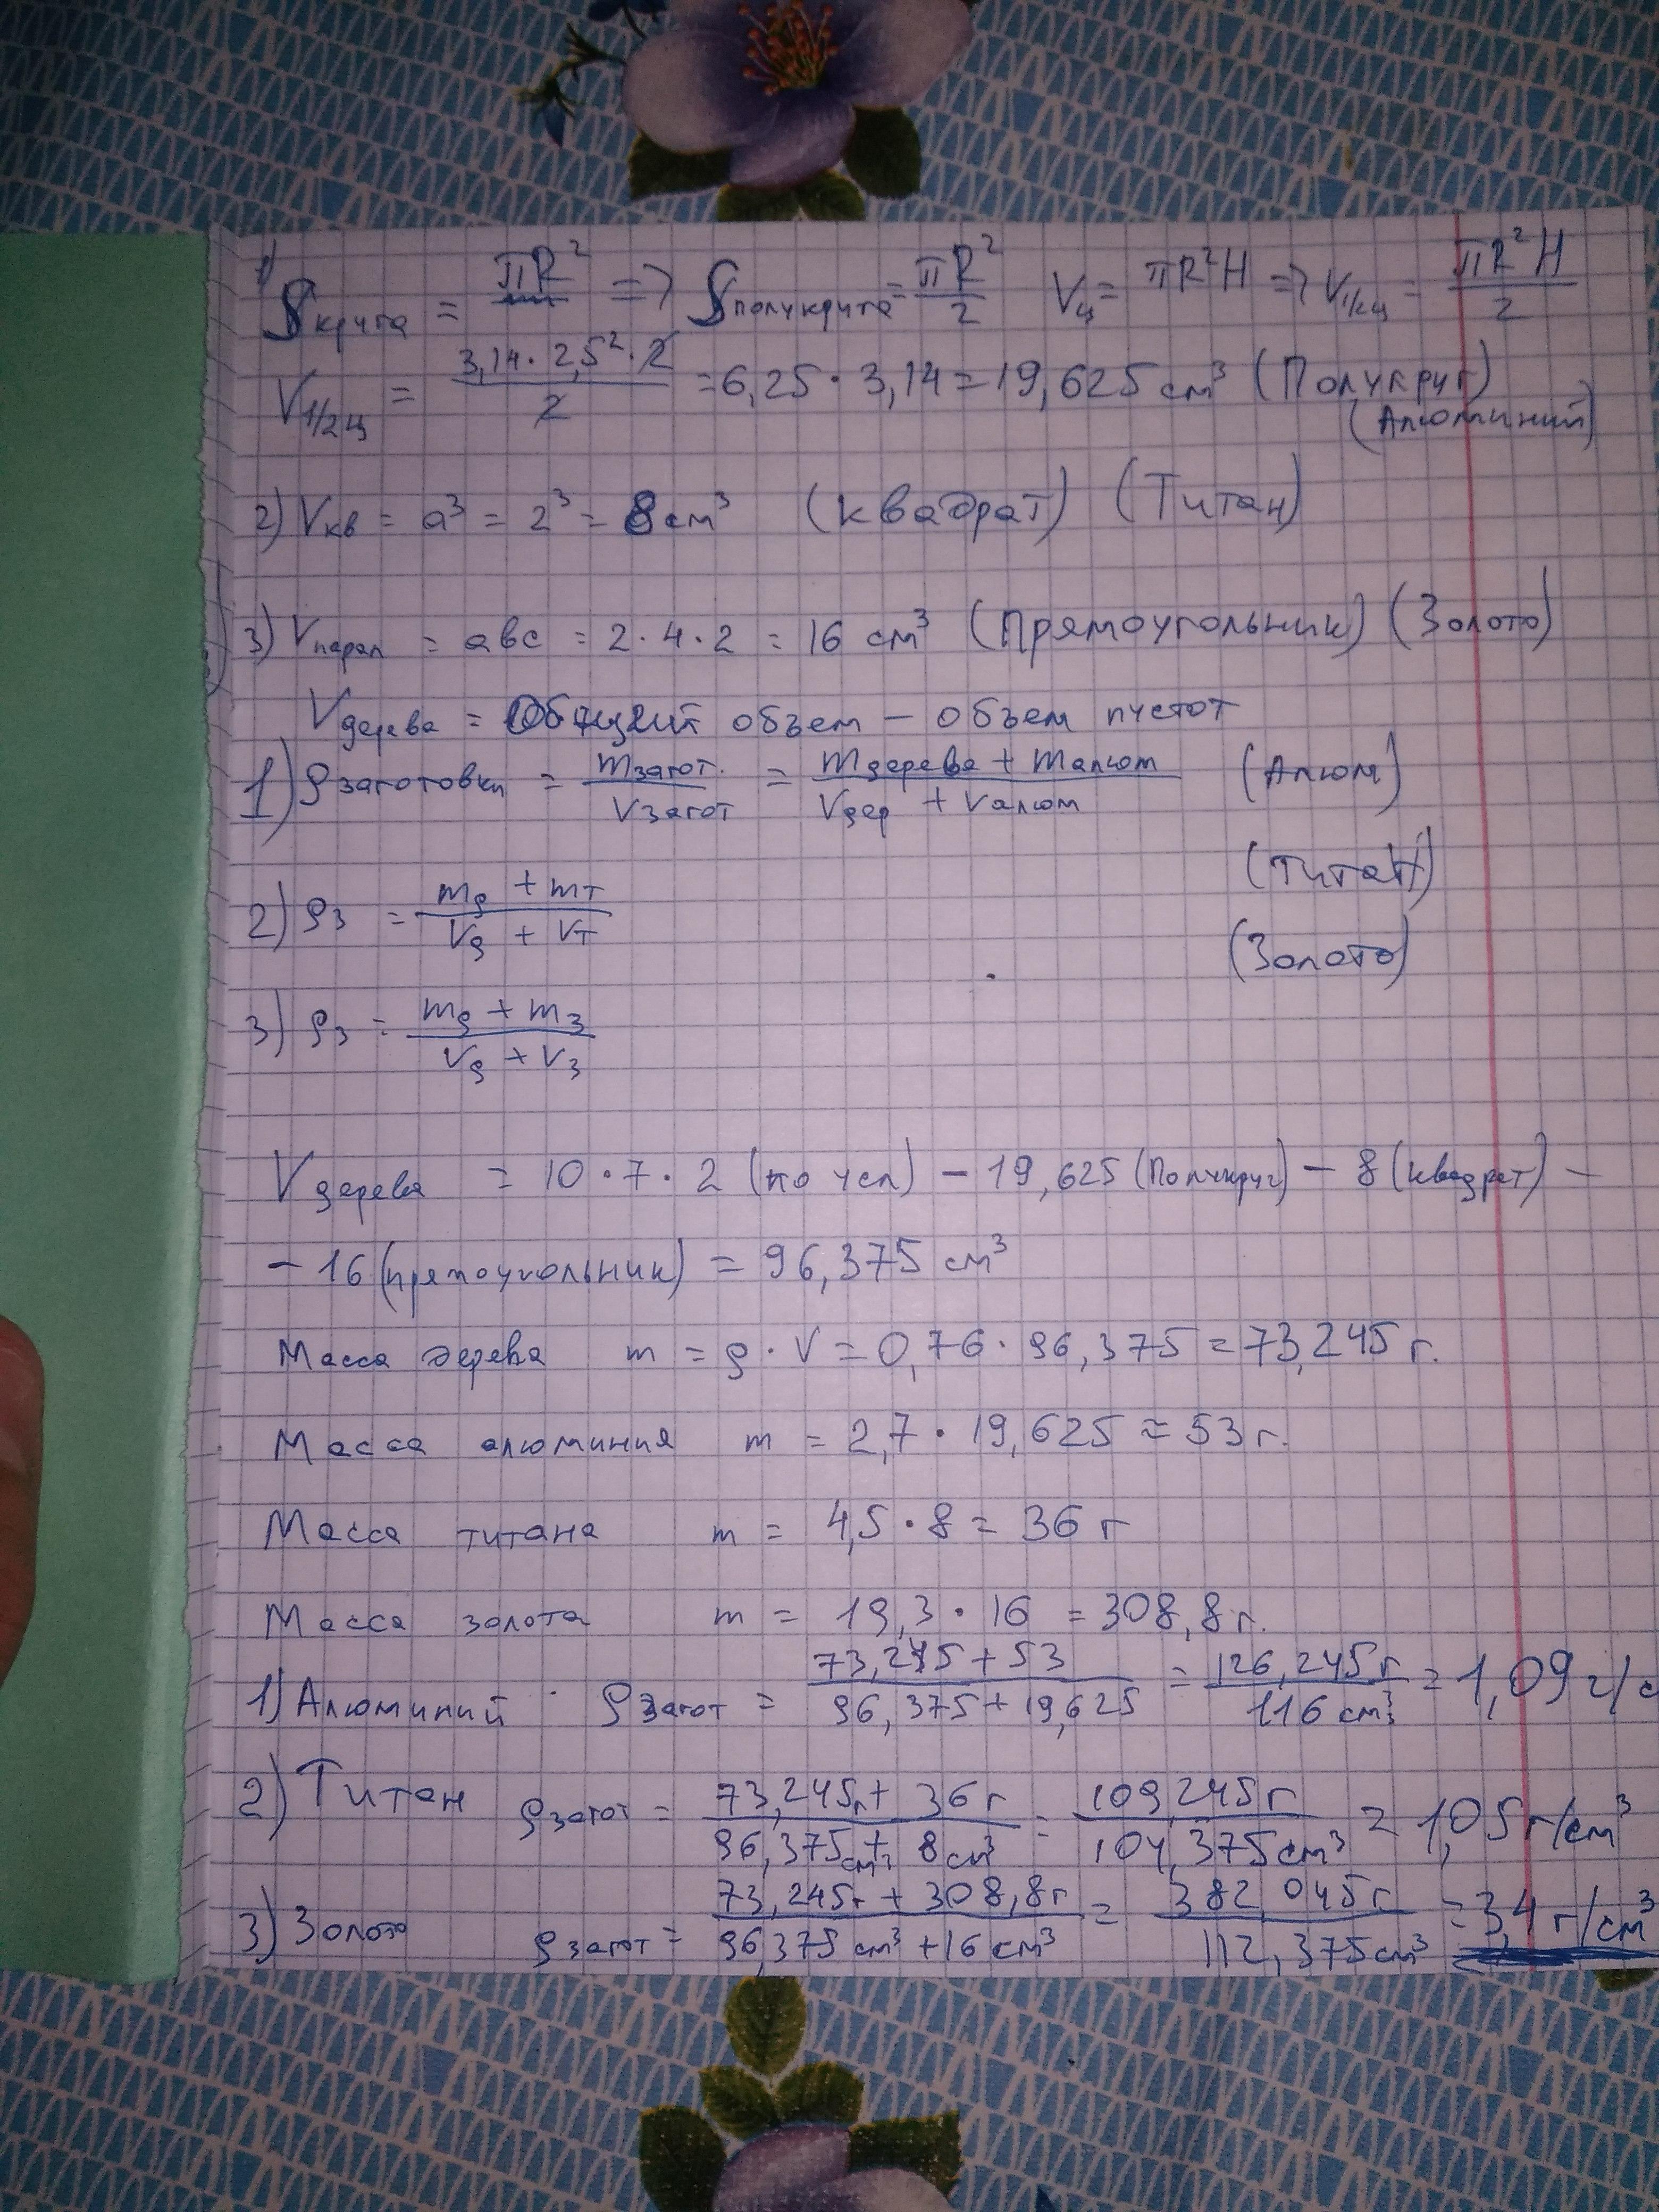 1) Sкруга = πR² => Sполукруга = πR²/2 Vц = πR²H => V1/2ц = πR²H/2
V1/2ц = 3,14 · 2,5² · 2/2 = 6,25 · 3,14 = 19,625 см³ (Полукруг)
(Алюминий)
2) Vкв = a³ = 2³ = 8 см³ (квадрат) (Титан)
3) Vпарал = abc = 2 · 4 · 2 = 16 см³ (Прямоугольник) (Золото)
Vдерева = Общий объем – объем пустот
1) ρзаготовки = mзагот./Vзагот = mдерева + mалюм/Vдер + Vалюм (Алюм)
(Титан)
2) ρз = mд + mт/Vд + Vт
(Золото)
3) ρз = mд + mз/Vд + Vз
Vдерева = 10 · 7 · 2 (по усл) – 19,625 (Полукруг) – 8 (квадрат) –
– 16 (прямоугольник) = 96,375 см³
Масса дерева m = ρ · V = 0,76 · 96,375 = 73,245 г.
Масса алюминия m = 2,7 · 19,625 ≈ 53 г.
Масса титана m = 4,5 · 8 = 36 г
Масса золота m = 19,3 · 16 = 308,8 г.
1) Алюминий ρзагот = 73,245 + 53/96,375 + 19,625 = 126,245 г/116 см³ = 1,09 г/с
2) Титан ρзагот = 73,245г + 36 г/96,375 см³ + 8 см³ = 109,245 г/104,375 см³ = 1,05 г/см³
3) Золото ρзагот = 73,245г + 308,8г/96,375 см³ + 16 см³ = 382,045 г/112,375 см³ = 3,4 г/см³